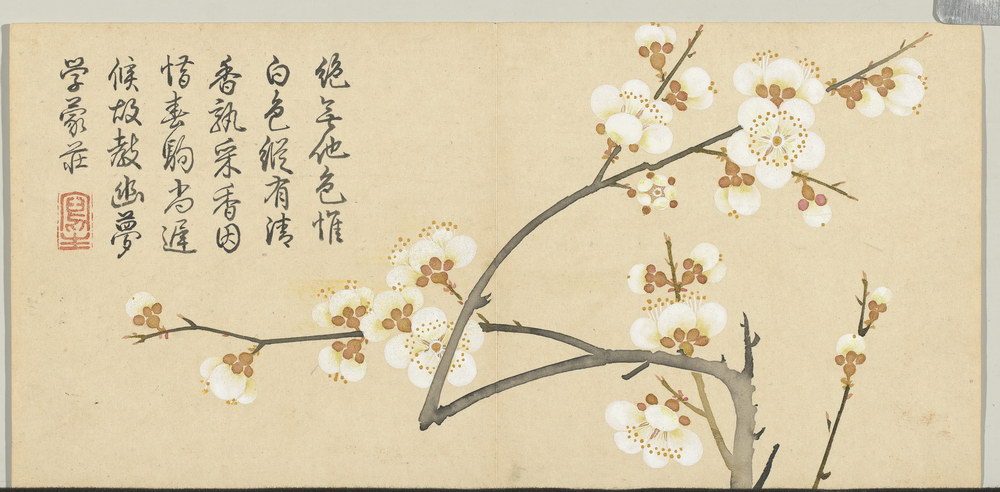 絶無他色惟
白色縱有清
香孰采香因
惜春駒尚遲
候故教幽夢
学蒙莊